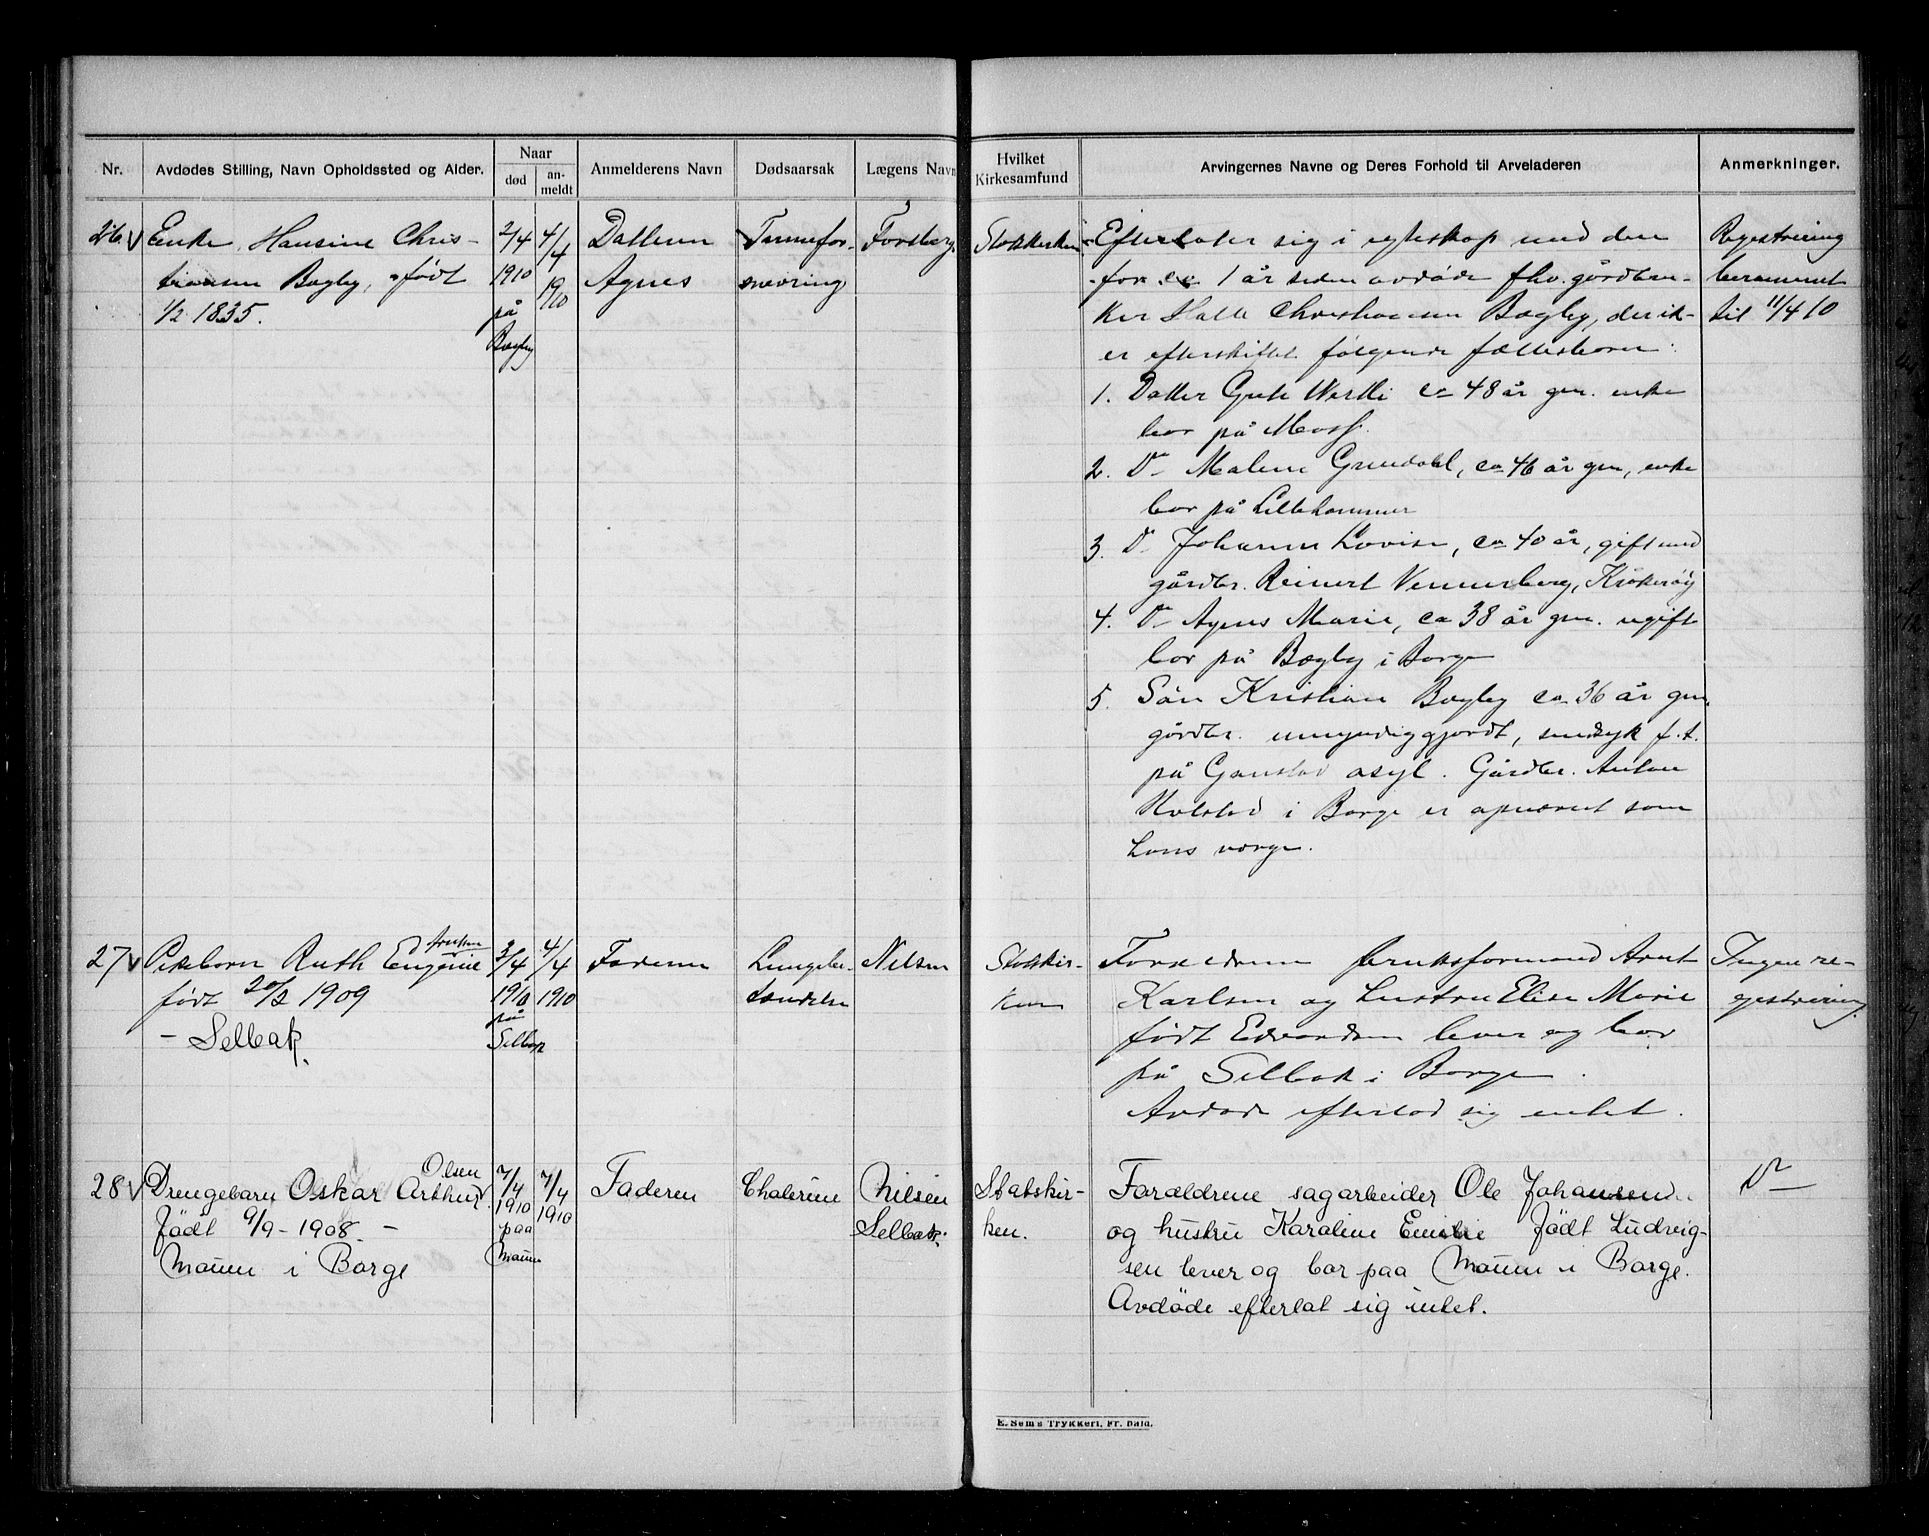 Nr.
Avdødes Stilling, Navn Opholdssted og Alder.
Naar
død
an-
meldt
Anmelderens Navn
Dødsaarsak
Lægens Navn
Hvilket
Kirkesamfund
Arvingernes Navne og Deres Forhold til Arveladeren
Anmerkninger.
26 v
Enke Hansine Chris-
tiansen Bøgby, født
1/2 1835.
2/4
1910
på
Bøgby
4/4
1910
Datteren
Agnes
Tarmefor-
snevring
Forsberg
Statskirken
Efterlater sig i egteskap med den
for ca 1 år siden avdøde fhv. gårdbru-
ker Halle Christiansen Bøgby, der ik-
er efterskiftet følgende fællesbarn:
1. Datter Gusta Westli ca 48 år gm. enke
bor på Moss.
2. Do Malene Grundahl, ca 46 år gm, enke
bor på Lillehammer
3. Do Johanne Lovise, ca 40 år, gift med
gårdbr. Reinert Vennersberg, Kråkerøy
4. Do Agnes Marie, ca 38 år gm. ugift
bor på Bøgby i Borge
5. Søn Kristian Bøgby ca 36 år gm.
gårdbr. umyndiggjordt, sindsyk f. t.
på Gaustad asyl. Gårdbr. Anton
Holstad i Borge er opnævnt som
hans verge.
Registrering
berammet
til 11/4 10
27 v
Arntsen
Pikebarn Ruth Eugenie
født 20/2 1909
- Selbak.
3/4
1910
på
Selbak
4/4
1910
Faderen
Lungebe-
tændelse
Nilsen
Statskir-
ken
Forældrene bruksformand Arnt
Karlsen og hustru Elise Marie
født Edvardsen lever og bor
på Selbak i Borge.
Avdøde efterlod sig intet.
Ingen re-
gistrering.
28 v
Olsen
Drengebarn Oskar Arthur
født 9/9 - 1908. -
Moum i Borge
7/4
1910
paa
Moum
7/4
1910
Faderen
Cholerine
Nilsen
Selbak.
Statskir-
ken.
Forældrene sagarbeider Ole Johansen
og hustru Karoline Emilie født Ludvig-
sen lever og bor paa Moum i Borge.
Avdøde efterlot sig intet.
Do
E. Sems Trykkeri, Fr. hald.